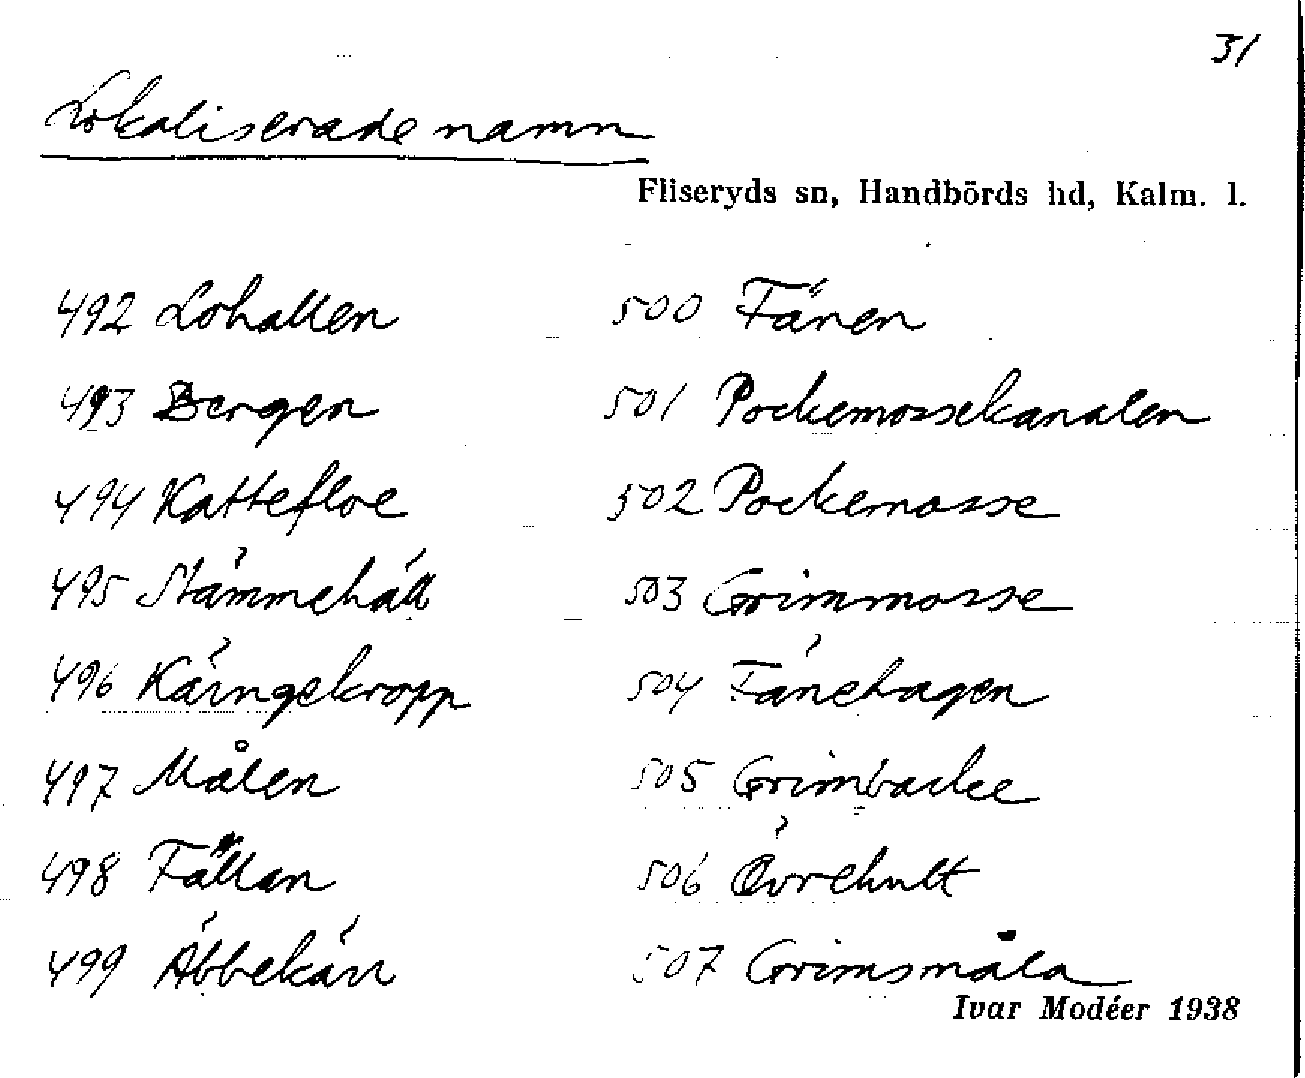 31
Lokaliserade namn
Fliseryds sn, Handbörds hd, Kalm. l.
492 Lohallen
493 Bergen
494 Kattefloe
495 Stämmehäll
496 Käringekropp
497 Målen
498 Fällan
499 Äbbekärr
500 Fänen
501 Pockemossekanalen
502 Pockemosse
503 Grimmosse
504 Fänehagen
505 Grimbacke
506 Övrehult
507 Grimsmåla
Ivar Modéer 1938